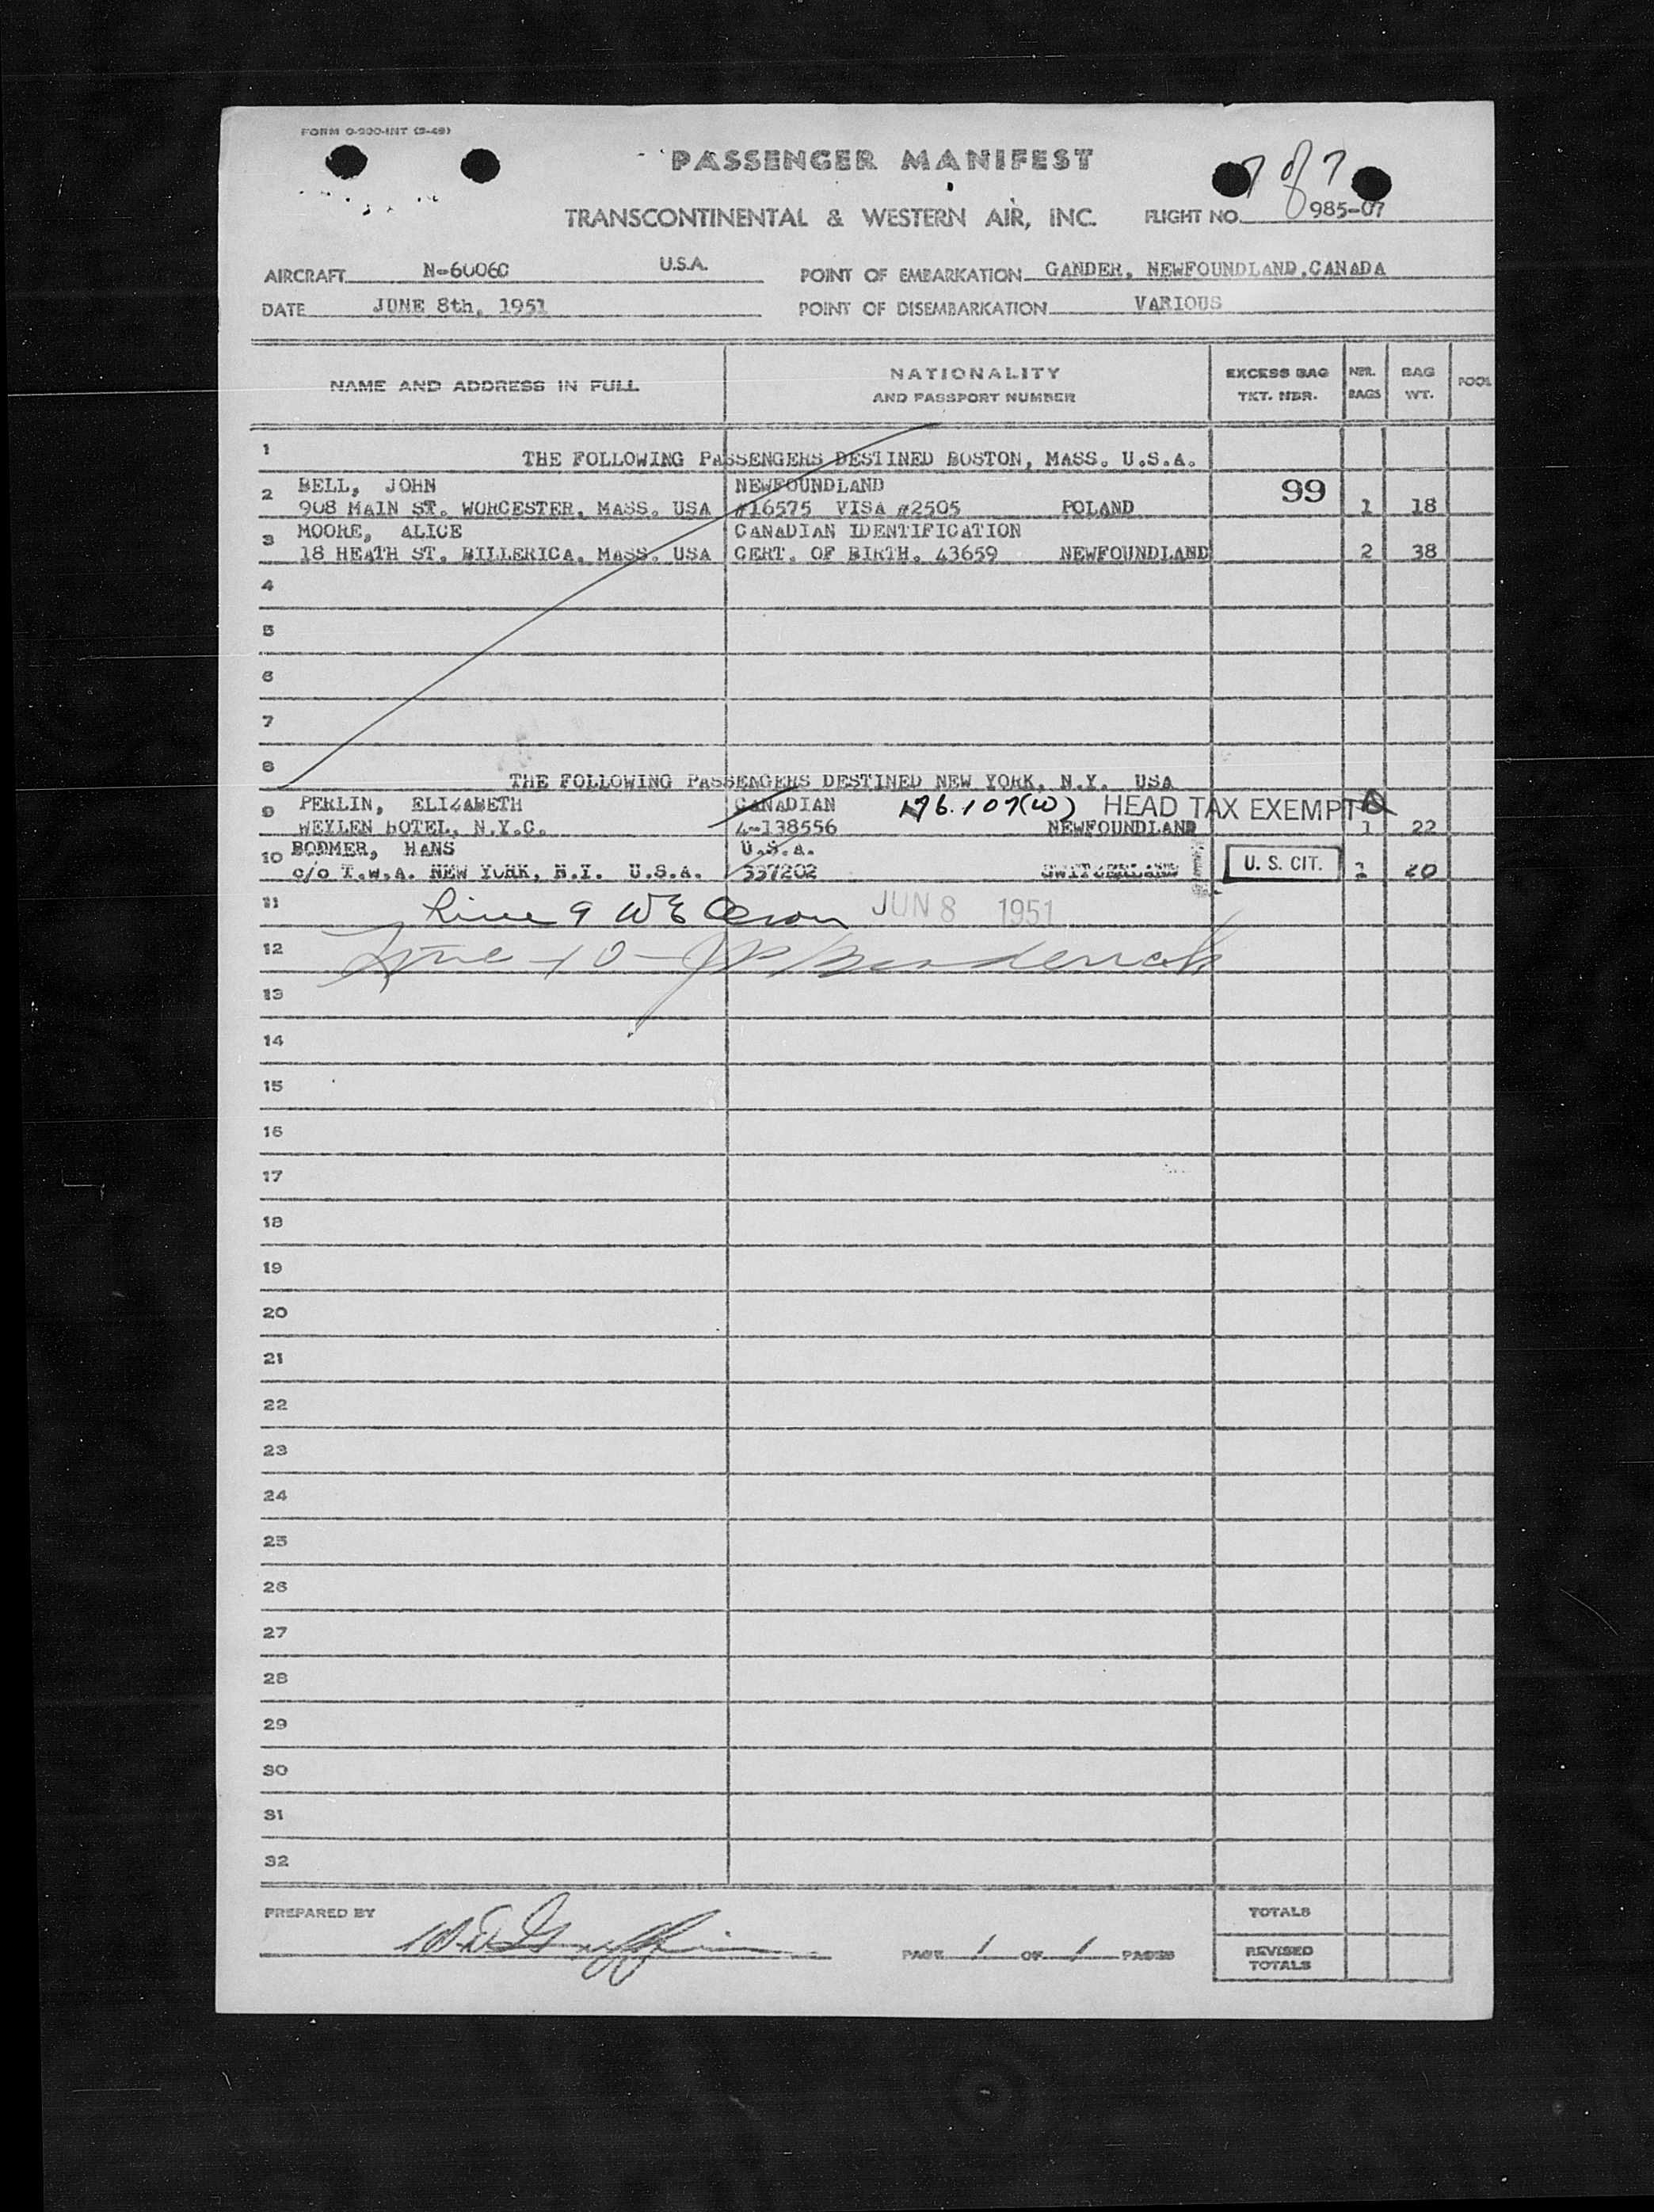 FORM O-200-INT (5-48)
PASSENGER MANIFEST
7 of 7
TRANSCONTINENTAL & WESTERN AIR, INC. FLIGHT NO. 985-07
AIRCRAFT N-6006C U.S.A. POINT OF EMBARKATION GANDER, NEWFOUNDLAND, CANADA
DATE JUNE 8th, 1951 POINT OF DISEMBARKATION VARIOUS
NAME AND ADDRESS IN FULL NATIONALITY AND PASSPORT NUMBER EXCESS BAG TKT. NBR. NBR. BAGS BAG WT. POOL
1 THE FOLLOWING PASSENGERS DESTINED BOSTON, MASS. U.S.A.
2 BELL, JOHN NEWFOUNDLAND 99
908 MAIN ST. WORCESTER, MASS. USA #16575 VISA #2505 POLAND 1 18
3 MOORE, ALICE CANADIAN IDENTIFICATION
18 HEATH ST. BILLERICA, MASS. USA CERT. OF BIRTH. 43659 NEWFOUNDLAND 2 38
4
5
6
7
8 THE FOLLOWING PASSENGERS DESTINED NEW YORK, N.Y. USA
9 PERLIN, ELIZABETH CANADIAN 176.107(w) HEAD TAX EXEMPT
WEYLEN HOTEL, N.Y.C. 4-138556 NEWFOUNDLAND 1 22
10 BODMER, HANS U.S.A.
c/o T.W.A. NEW YORK, N.Y. U.S.A. 337202 SWITZERLAND U. S. CIT. 1 20
11 Line 9 JUN 8 1951
12 Line - 10 -
13
14
15
16
17
18
19
20
21
22
23
24
25
26
27
28
29
30
31
32
PREPARED BY TOTALS
PAGE 1 OF 1 PAGES REVISED TOTALS